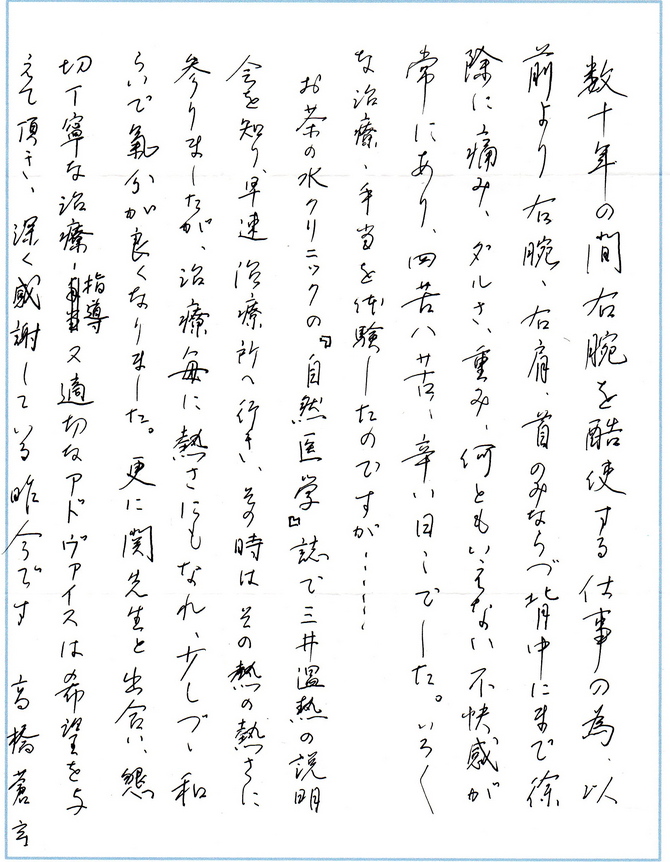 数十年の間右腕を酷使する仕事の為、以
前より右腕、右肩、首のみならづ背中にまで徐
除に痛み、ダルさ、重み、何ともいえない不快感が
常にあり、四苦八苦、辛い日々でした。いろ〱
な治療、手当を体験したのですが……
お茶の水クリニックの『自然医学』誌で三井温熱の説明
会を知り、早速治療所へ行き、その時はその熱の熱さに
参りましたが、治療毎に熱さにもなれ、少しづゝ和
らいで氣分が良くなりました。更に関先生と出合い、懇
切丁寧な治療、指導又適切なアドヴァイスは希望を与
えて頂き、深く感謝している昨今です 高橋蒼